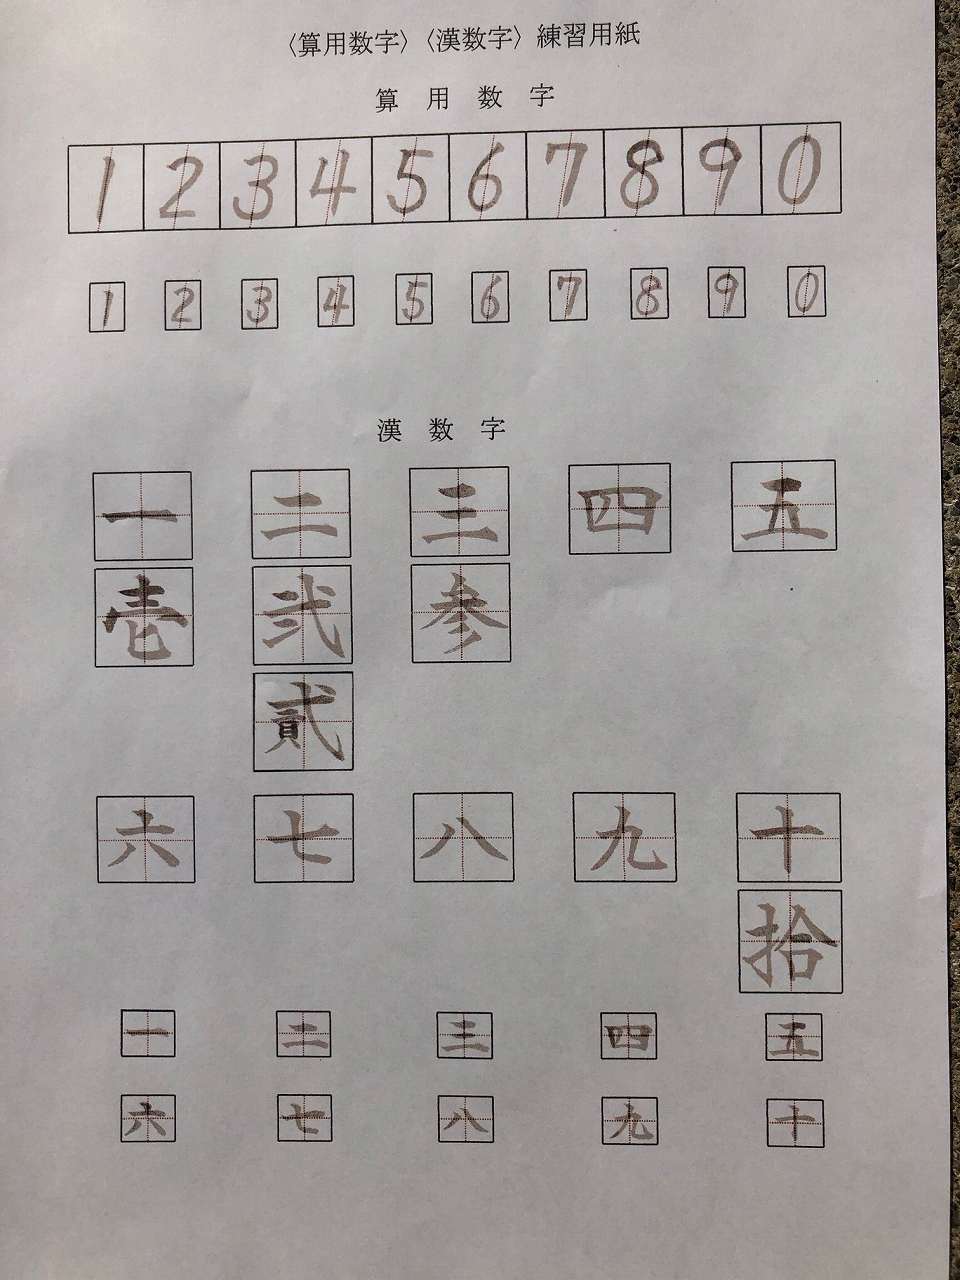 〈算用数字〉〈漢数字〉練習用紙
算用数字
1 2 3 4 5 6 7 8 9 0
1 2 3 4 5 6 7 8 9 0
漢数字
一 二 三 四 五
壱 弐 参
貳
六 七 八 九 十
拾
一 二 三 四 五
六 七 八 九 十